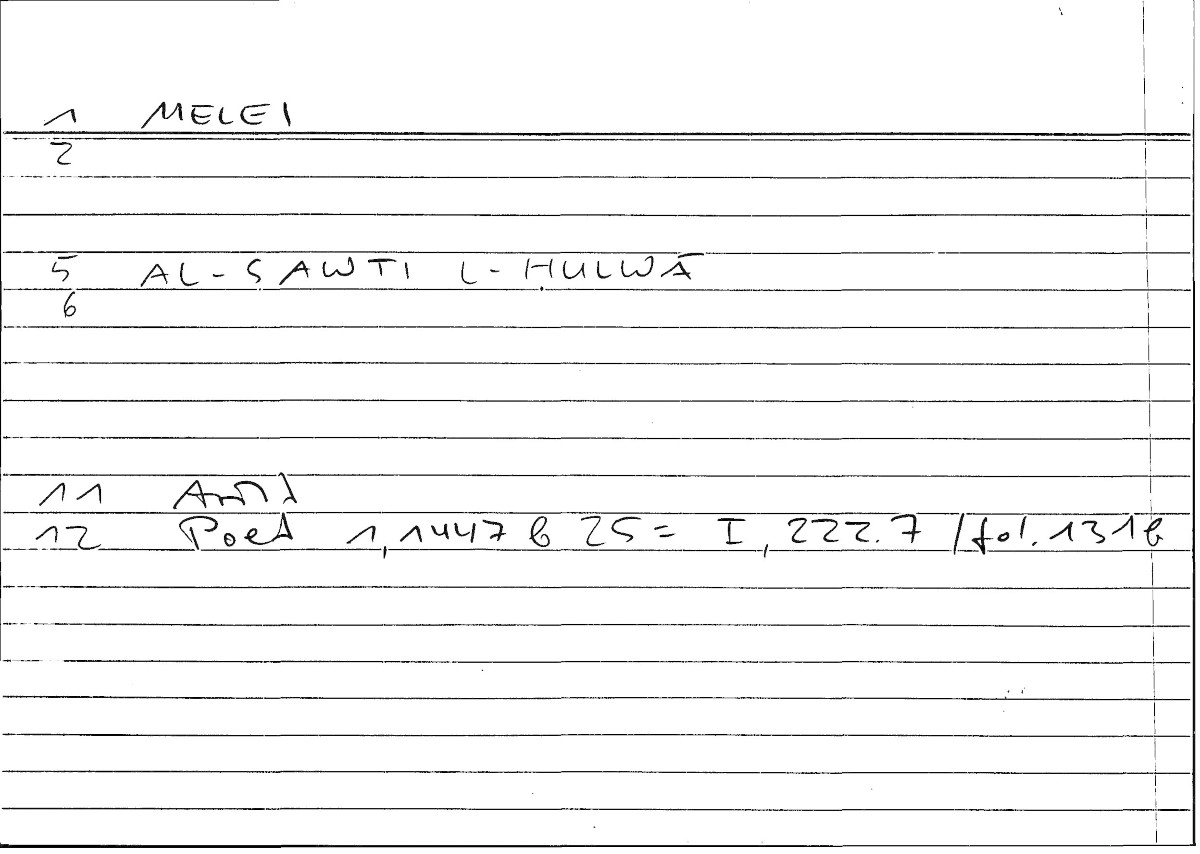 1 MELEI
2
5 AL-ṢAWTI L-ḤULWĀ
6
11 Arist
12 Poet 1,1447 b 25 = I, 222.7 /fol. 131b